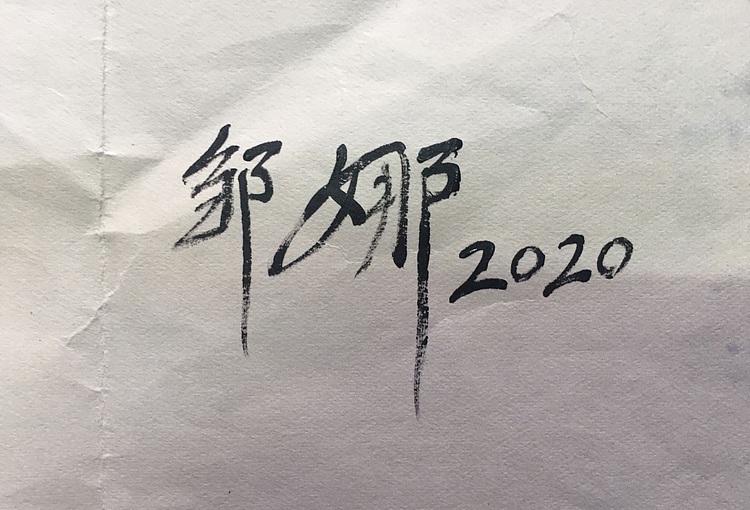 邹娜2020